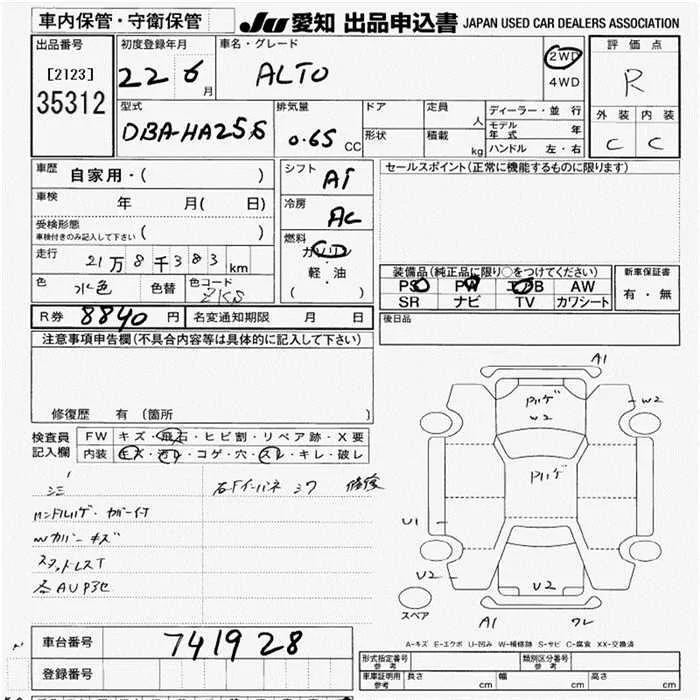 車内保管・守衛保管
JU 愛知 出品申込書 JAPAN USED CAR DEALERS ASSOCIATION
出品番号
[2123]
35312
初度登録年月
22 6 月
車名・グレード
ALTO
2WD
4WD
評価点
R
外装 内装
C C
型式
DBA-HA25S
排気量
0.65 CC
ドア
形状
定員 人
積載 kg
ディーラー・並行
モデル年式 年
ハンドル 左・右
車歴 自家用・( )
車検 年 月( 日)
受検形態
車検付きのみ記入して下さい ( )
走行 21万8千383 km
色 水色 色替 色コード ZKS
シフト AT
冷房 AC
燃料
ガソリン
・
軽・油
( )
セールスポイント(正常に機能するものに限ります)
装備品(純正品に限り○をつけてください)
PS PW エアB AW
SR ナビ TV カワシート
新車保証書
有・無
R券 8840 円 名変通知期限 月 日
後日品
注意事項申告欄(不具合内容等は具体的に記入して下さい)
修復歴 有(箇所 )
検査員記入欄
FW キズ・飛石・ヒビ割・リペア跡・X要
内装 キズ・汚レ・コゲ・穴・スレ・キレ・破レ
シミ
ハンドルハゲ・
Wカバーキズ
スタットレスT
シワ 修復
A1
Pハゲ
W2
W2
Pハゲ
U1
U2
U2
スペア
A1
ワレ
A-キズ E-エクボ U-凹み W-補修跡 S-サビ C-腐食 XX-交換済
車台番号 741928
登録番号
形式指定番号 参考
類別区分番号 参考
車庫証明用 参考 長さ cm 幅 cm 高さ cm